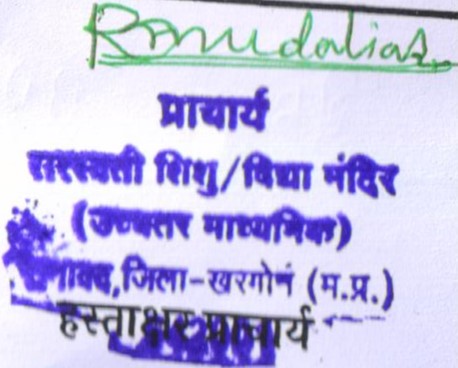 प्राचार्य
सरस्वती शिशु/विद्या मंदिर
(उच्चतर माध्यमिक)
जिला-खरगोन (म.प्र.)
हस्ताक्षर प्राचार्य